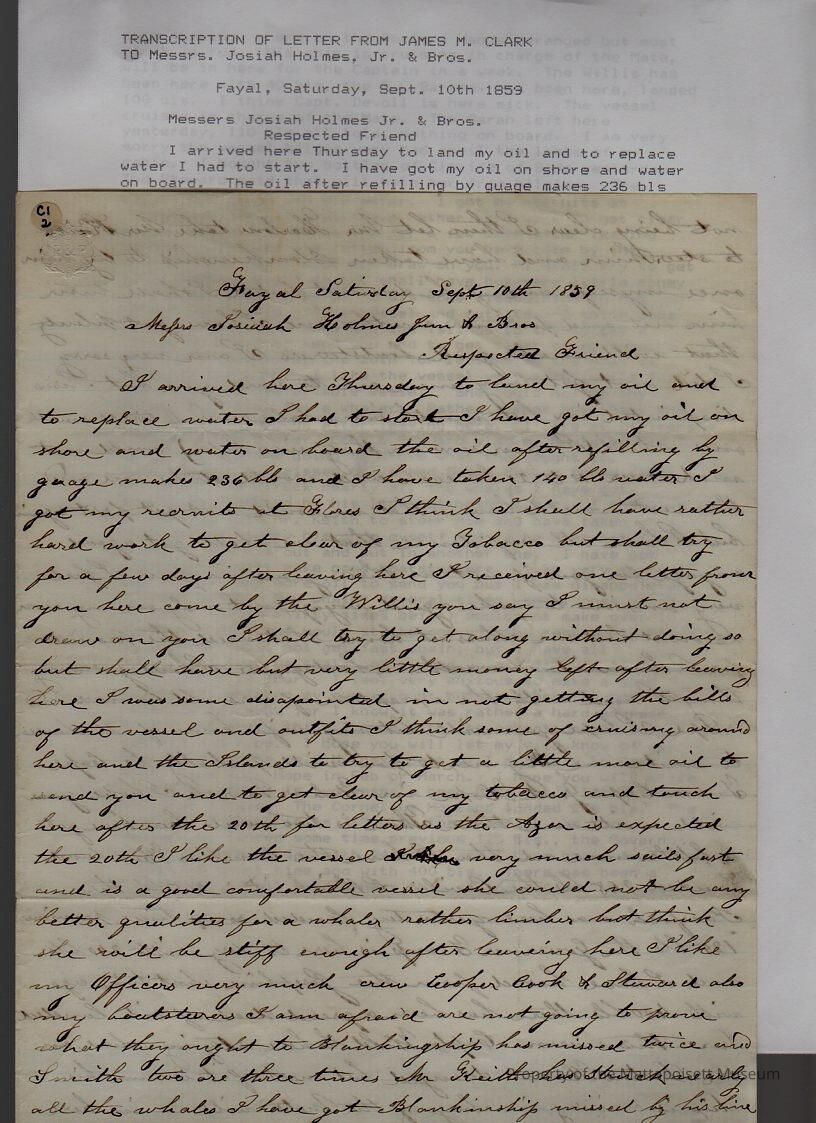 TRANSCRIPTION OF LETTER FROM JAMES M. CLARK
TO Messrs. Josiah Holmes, Jr. & Bros.
Fayal, Saturday, Sept. 10th 1859
Messers Josiah Holmes Jr. & Bros.
Respected Friend
I arrived here Thursday to land my oil and to replace
water I had to start. I have got my oil on shore and water
on board. The oil after refilling by guage makes 236 bls
C1
2
Fayal Saturday Sept 10th 1859
Messrs Josiah Holmes Jun & Bros
Respected Friend
I arrived here Thursday to land my oil and
to replace water I had to start I have got my oil on
shore and water on board the oil after refilling by
guage makes 236 bls and I have taken 140 bls water I
got my recruits at Flores I think I shall have rather
hard work to get clear of my Tobacco but shall try
for a few days after leaving here I received one letter from
you here come by the Willis you say I must not
draw on you I shall try to get along without doing so
but shall have but very little money left after leaving
here I was some disapointed in not getting the bills
of the vessel and outfits I think some of cruising around
here and the Islands to try to get a little more oil to
send you and to get clear of my tobacco and touch
here after the 20th for letters as the Azor is expected
the 20th I like the vessel very much sails fast
and is a good comfortable vessel she could not be any
better qualities for a whaler rather limber but think
she will be stiff enough after leaveing here I like
my Officers very much crew Cooper Cook & Steward also
my boatsterers I am afraid are not going to prove
what they ought to Blankingship has missed twice and
Smith two ore three times Mr Keith has struck nearly
all the whales I have got Blankinship missed by his line
Property of the Mattapoisett Museum